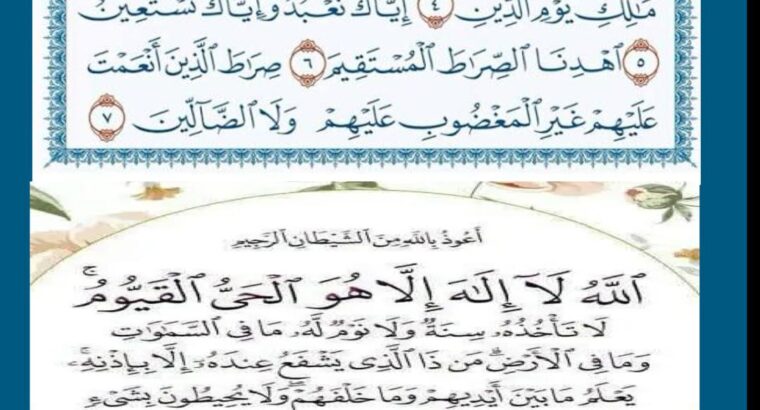 مَٰلِكِ يَوْمِ ٱلدِّينِ ٤ إِيَّاكَ نَعْبُدُ وَإِيَّاكَ نَسْتَعِينُ
٥ ٱهْدِنَا ٱلصِّرَٰطَ ٱلْمُسْتَقِيمَ ٦ صِرَٰطَ ٱلَّذِينَ أَنْعَمْتَ
عَلَيْهِمْ غَيْرِ ٱلْمَغْضُوبِ عَلَيْهِمْ وَلَا ٱلضَّآلِّينَ ٧
أعُوذُ بِاللهِ مِنَ ٱلشَّيْطَانِ ٱلرَّجِيمِ
ٱللَّهُ لَآ إِلَٰهَ إِلَّا هُوَ ٱلْحَىُّ ٱلْقَيُّومُ ۚ
لَا تَأْخُذُهُۥ سِنَةٌ وَلَا نَوْمٌ لَّهُۥ مَا فِى ٱلسَّمَٰوَٰتِ
وَمَا فِى ٱلْأَرْضِ ۗ مَن ذَا ٱلَّذِى يَشْفَعُ عِندَهُۥٓ إِلَّا بِإِذْنِهِۦ ۚ
يَعْلَمُ مَا بَيْنَ أَيْدِيهِمْ وَمَا خَلْفَهُمْ ۖ وَلَا يُحِيطُونَ بِشَىْءٍ